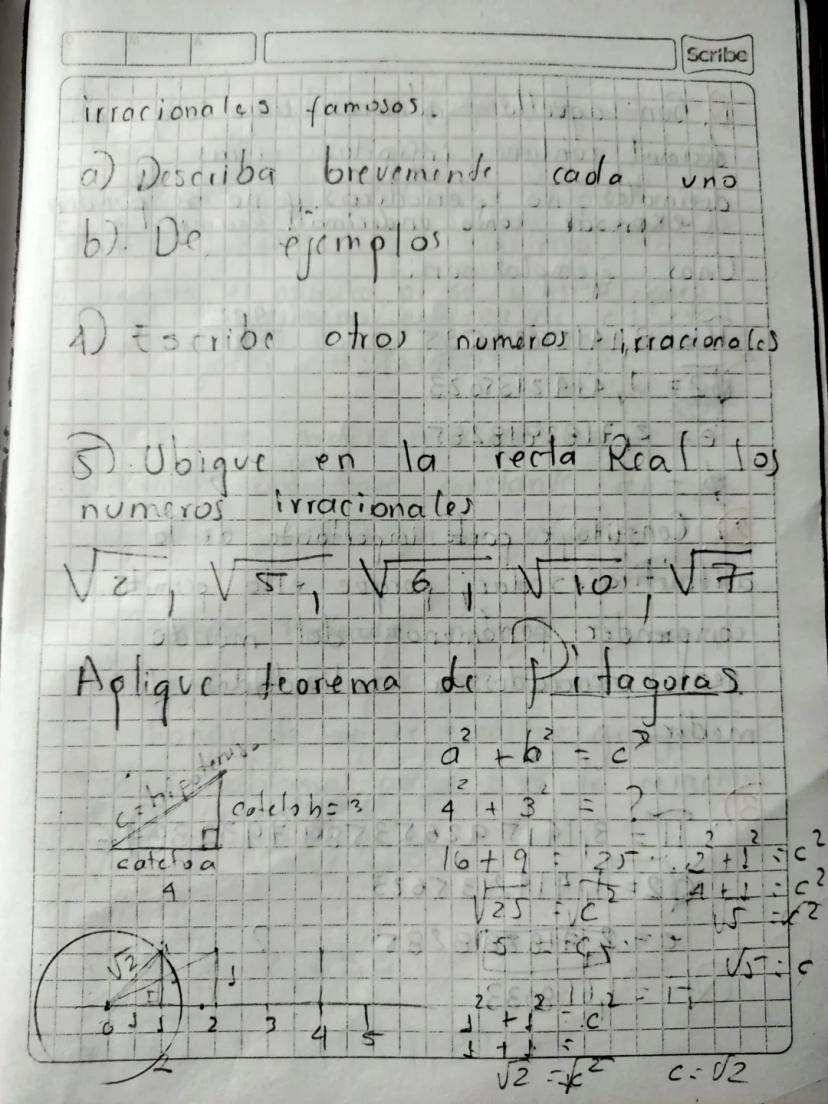 Scribe
irracionales famosos.
a) Describa brevemente cada uno
b). De ejemplos
4) Escribe otros numeros irracionales
5) Ubique en la recta Real los
numeros irracionales
√2, √5, √6, √10, √7
Aplique teorema de Pitagoras
a² + b² = c²
c = hipotenusa
cateto b = 3
4² + 3² = ?
cateto a
4
16 + 9 = 25
√25 = √c²
5 = c
2² + 1² = c²
4 + 1 = c²
√5 = c²
√5 = c
√2
1
0 1 1 2 3 4 5
1² + 1² = c²
1 + 1 =
√2 = √c² c = √2